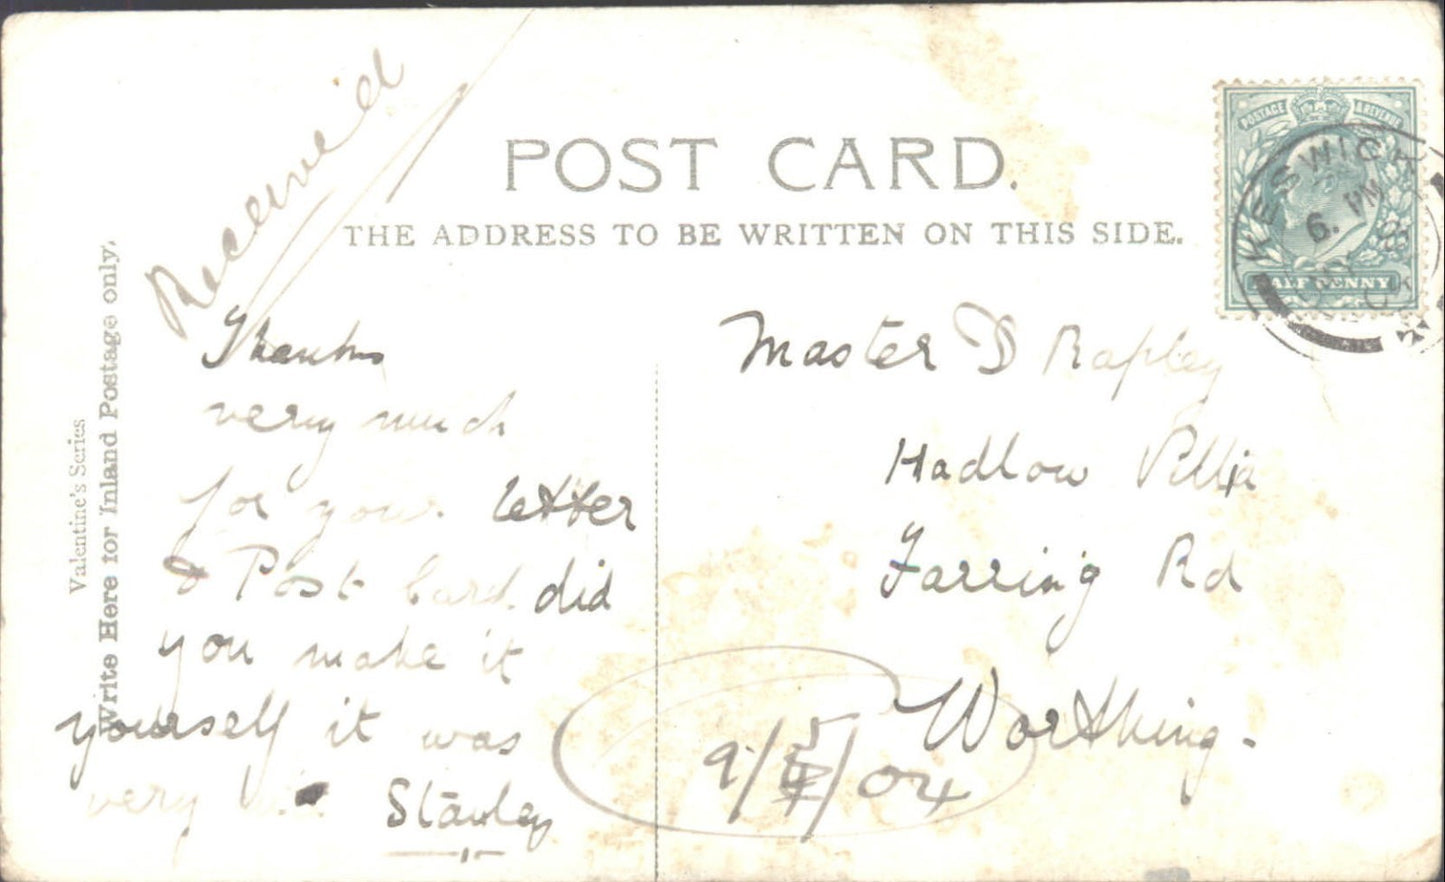 POST CARD.
THE ADDRESS TO BE WRITTEN ON THIS SIDE.
Valentine's Series
Write Here for Inland Postage only.
POSTAGE & REVENUE
HALF PENNY
KESWICK
6. PM
Thanks
very much
for your letter
& Post Card did
you make it
yourself it was
very
Stanley
Master D Rapley
Hadlow Villa
Farring Rd
Worthing.
9/5/04